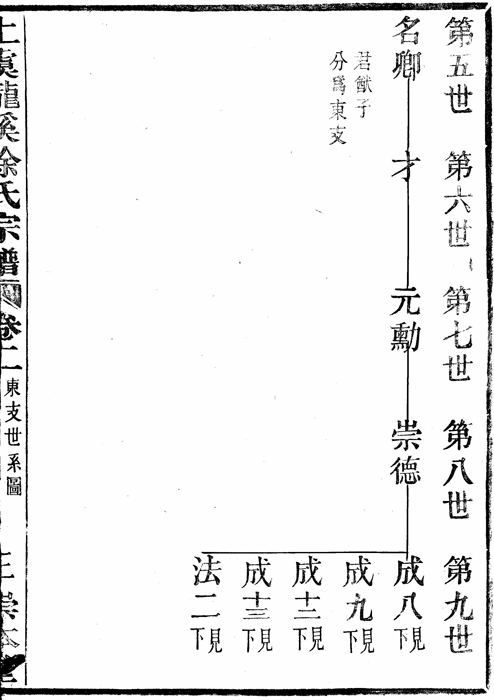 第五世
第六世
第七世
第八世
第九世
名卿
君猷子
分爲東支
才
元勳
崇德
成八
見下
成九
見下
成十二
見下
成十三
見下
法二
見下
上虞龍溪徐氏宗譜
卷二
東支世系圖
崇本堂